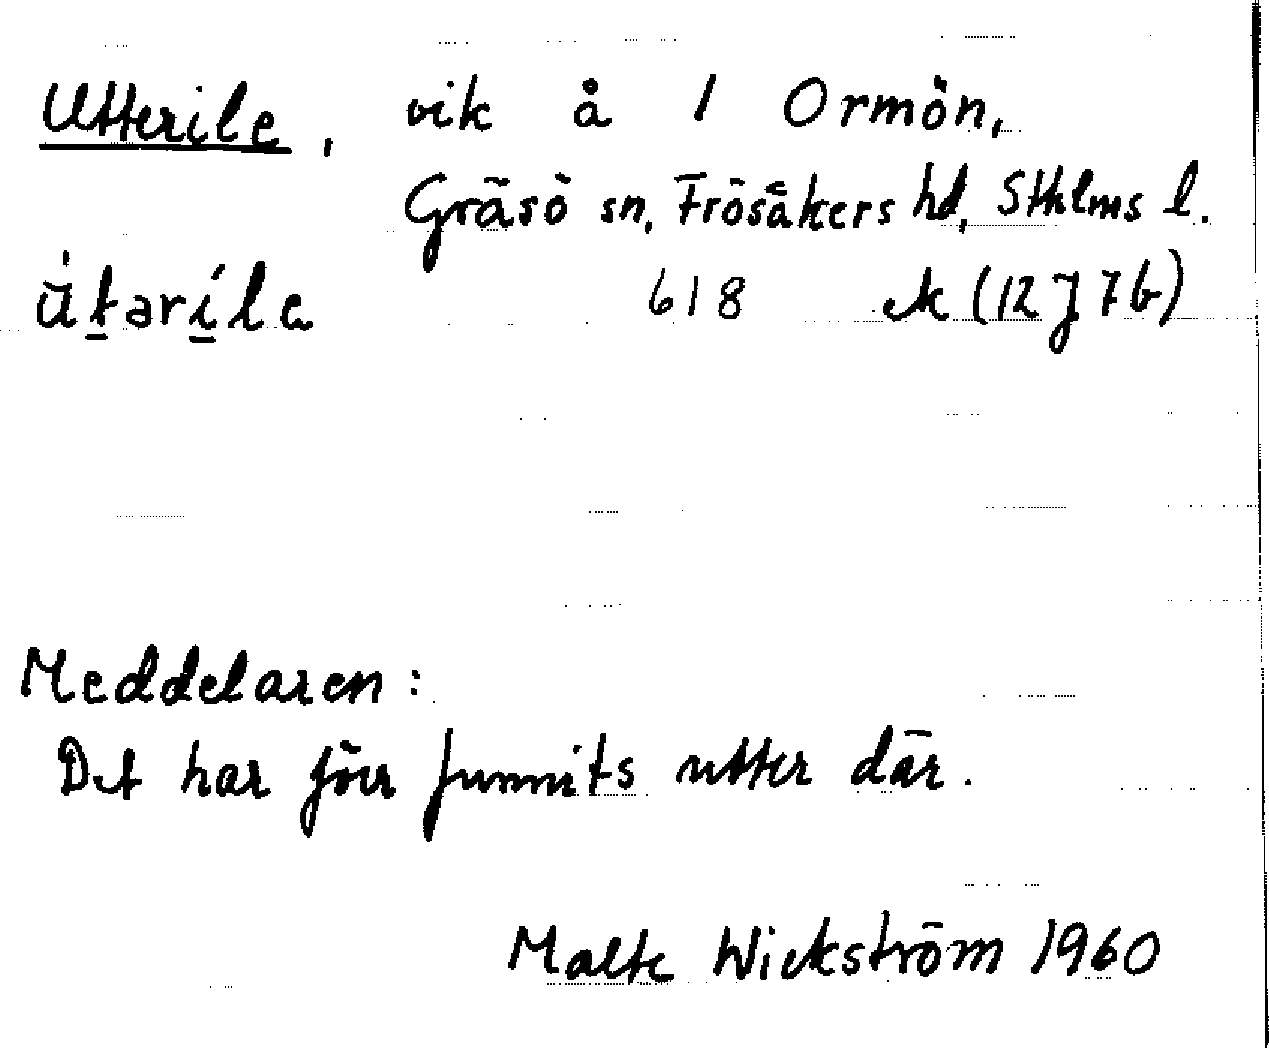 Utterile, vik å 1 Ormön,
Gräsö sn, Frösåkers hd, Sthlms l.
ʉ́taríle 618 ek (12 J 7 b)
Meddelaren:
Det har förr funnits utter där.
Malte Wickström 1960